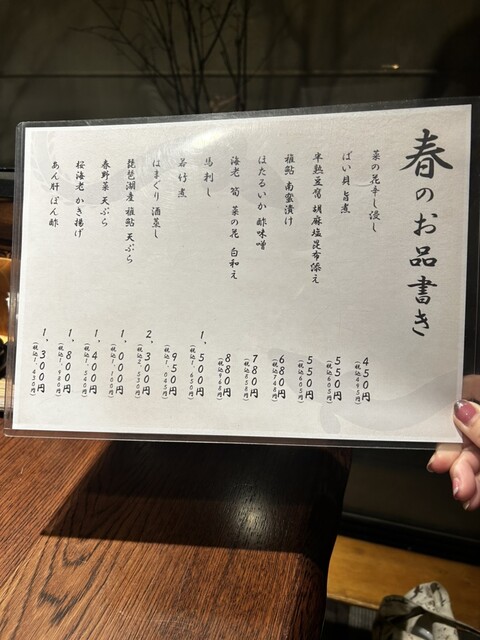 春のお品書き
菜の花辛し浸し 450円 (税込495円)
ばい貝 旨煮 550円 (税込605円)
半熟豆腐 胡麻塩昆布添え 550円 (税込605円)
稚鮎 南蛮漬け 680円 (税込748円)
ほたるいか 酢味噌 780円 (税込858円)
海老 筍 菜の花 白和え 880円 (税込968円)
馬刺し 1,500円 (税込1,650円)
若竹煮 950円 (税込1,045円)
はまぐり 酒蒸し 2,300円 (税込2,530円)
琵琶湖産 稚鮎 天ぷら 1,000円 (税込1,100円)
春野菜 天ぷら 1,400円 (税込1,540円)
桜海老 かき揚げ 1,800円 (税込1,980円)
あん肝 ぽん酢 1,300円 (税込1,430円)